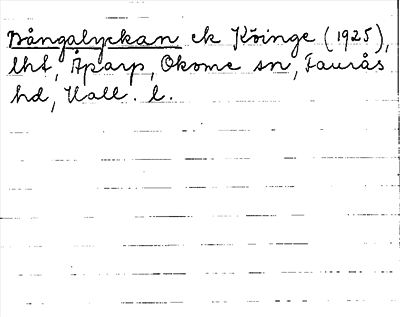 Bångalyckan ek Köinge (1925),
lht, Åparp, Okome sn, Faurås
hd, Hall. l.